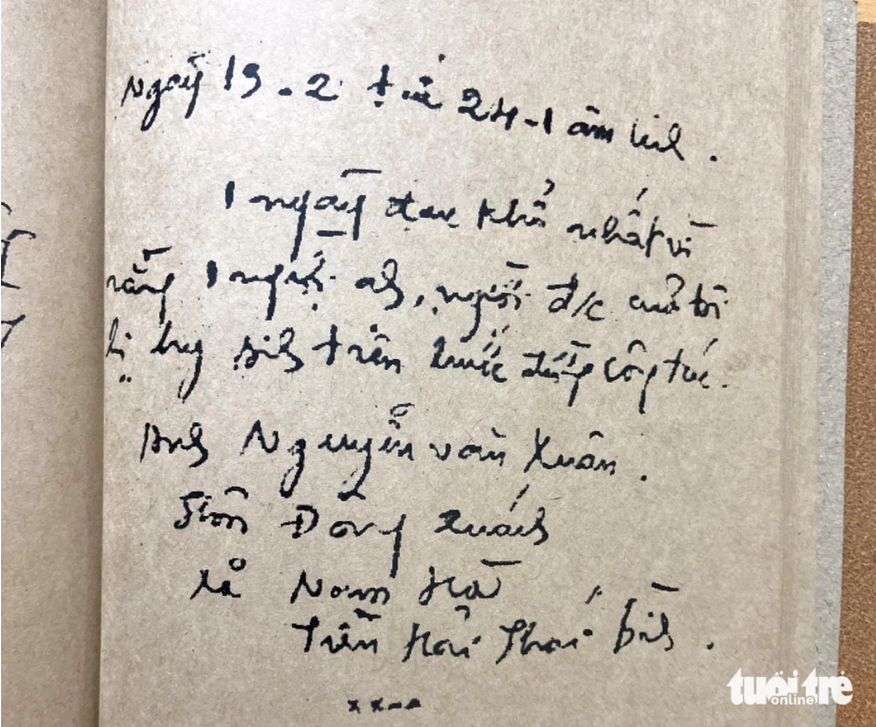 Ngày 19-2 tức 24-1 âm lịch.
1 ngày đau khổ nhất vì
rằng 1 người anh, người đ/c của tôi
bị hy sinh trên bước đường công tác.
Anh Nguyễn văn Xuân.
Thôn Đông Quách
xã Nam Hà
Tiền Hải Thái bình.
xx--
tuổi trẻ
online